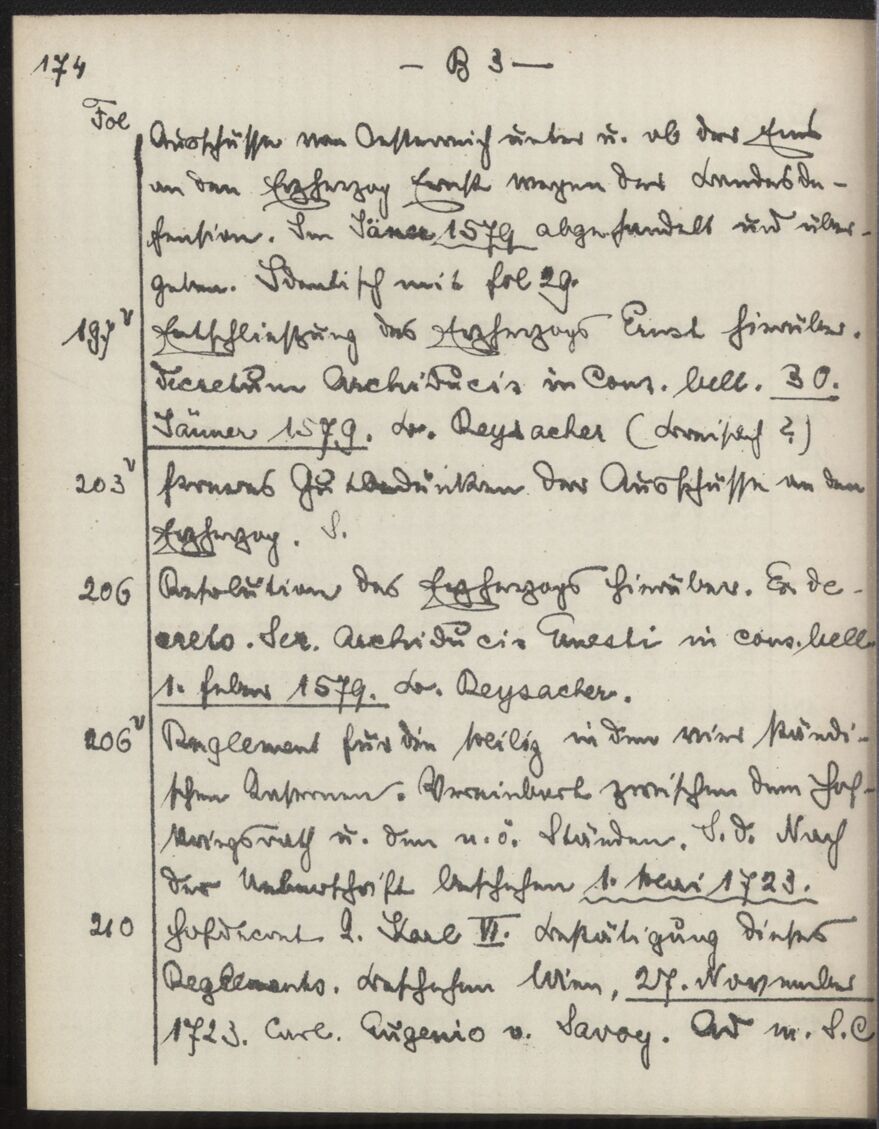 174
— B 3 —
Fol
Ausschüsse von Oesterreich unter u. ob der Enns
an den Erzherzog Ernst wegen der Landesde-
fension. Im Jäner 1579 abgehandelt und über-
geben. Identisch mit fol 29.
197v Entschließung des Erzherzogs Ernst hierüber.
Decretum Archiducis in Cons. bell. 30.
Jänner 1579. Reysacher
203v Ferneres Gutbedünken der Ausschüsse an den
Erzherzog. S.
206 Resolution des Erzherzogs hierüber. Ex de-
creto. Ser. Archiducis Ernesti in cons. bell.
1. Feber 1579. Reysacher.
206v Reglement für die Miliz in den vier ständi-
schen Kasernen. Vereinbart zwischen dem Hof-
kriegsrath u. den n.ö. Ständen. S.d. Nach
der Ueberschrift beschehen 1. Mai 1723.
210 Hofdecret K. Karl VI. Bestätigung dieses
Reglements. Beschehen Wien, 27. November
1723. Carl. Eugenio v. Savoy. Ad m. S.C